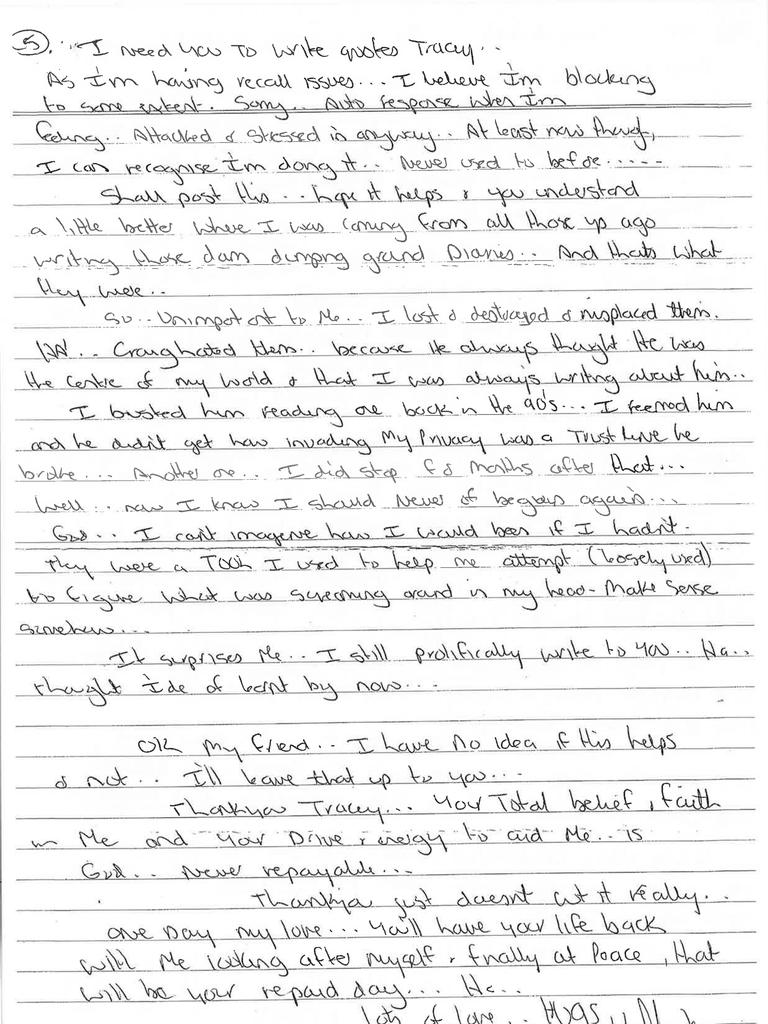 5. I need you to write quotes Tracey..
As I'm having recall issues... I believe I'm blocking
to some extent. Sorry.. Auto response when I'm
feeling.. Attacked & stressed in anyway.. At least now though,
I can recognise I'm doing it.. Never used to before.....
Shall post this.. hope it helps & you understand
a little better where I was coming from all those yrs ago
writing those dam dumping ground Diaries.. And thats what
they were..
So.. Unimportant to Me.. I lost & destroyed & misplaced them.
.. Craig hated them.. because He always thought He was
the centre of my world & that I was always writing about him..
I busted him reading one back in the 90's... I reemed him
and he didn't get how invading My Privacy was a Trust he
broke... Another one.. I did stop for months after that...
Well.. now I know I should Never of begun again...
God.. I can't imagene how I would been if I hadn't.
They were a TOOL I used to help me attempt (loosely used)
to figure what was screaming around in my head - Make Sense
somehow...
It surprises Me.. I still prolifically write to you.. Ha..
thought I'de of learnt by now...
OK my friend.. I have no idea if this helps
or not.. I'll leave that up to you...
Thankyou Tracey... Your Total belief, faith
in Me and your Drive & energy to aid Me... is
God.. Never repayable...
Thankya just doesn't cut it really..
one Day my love... You'll have your life back
with Me looking after myself & finally at Peace, that
will be your repaid day... Ha..
lots of love..